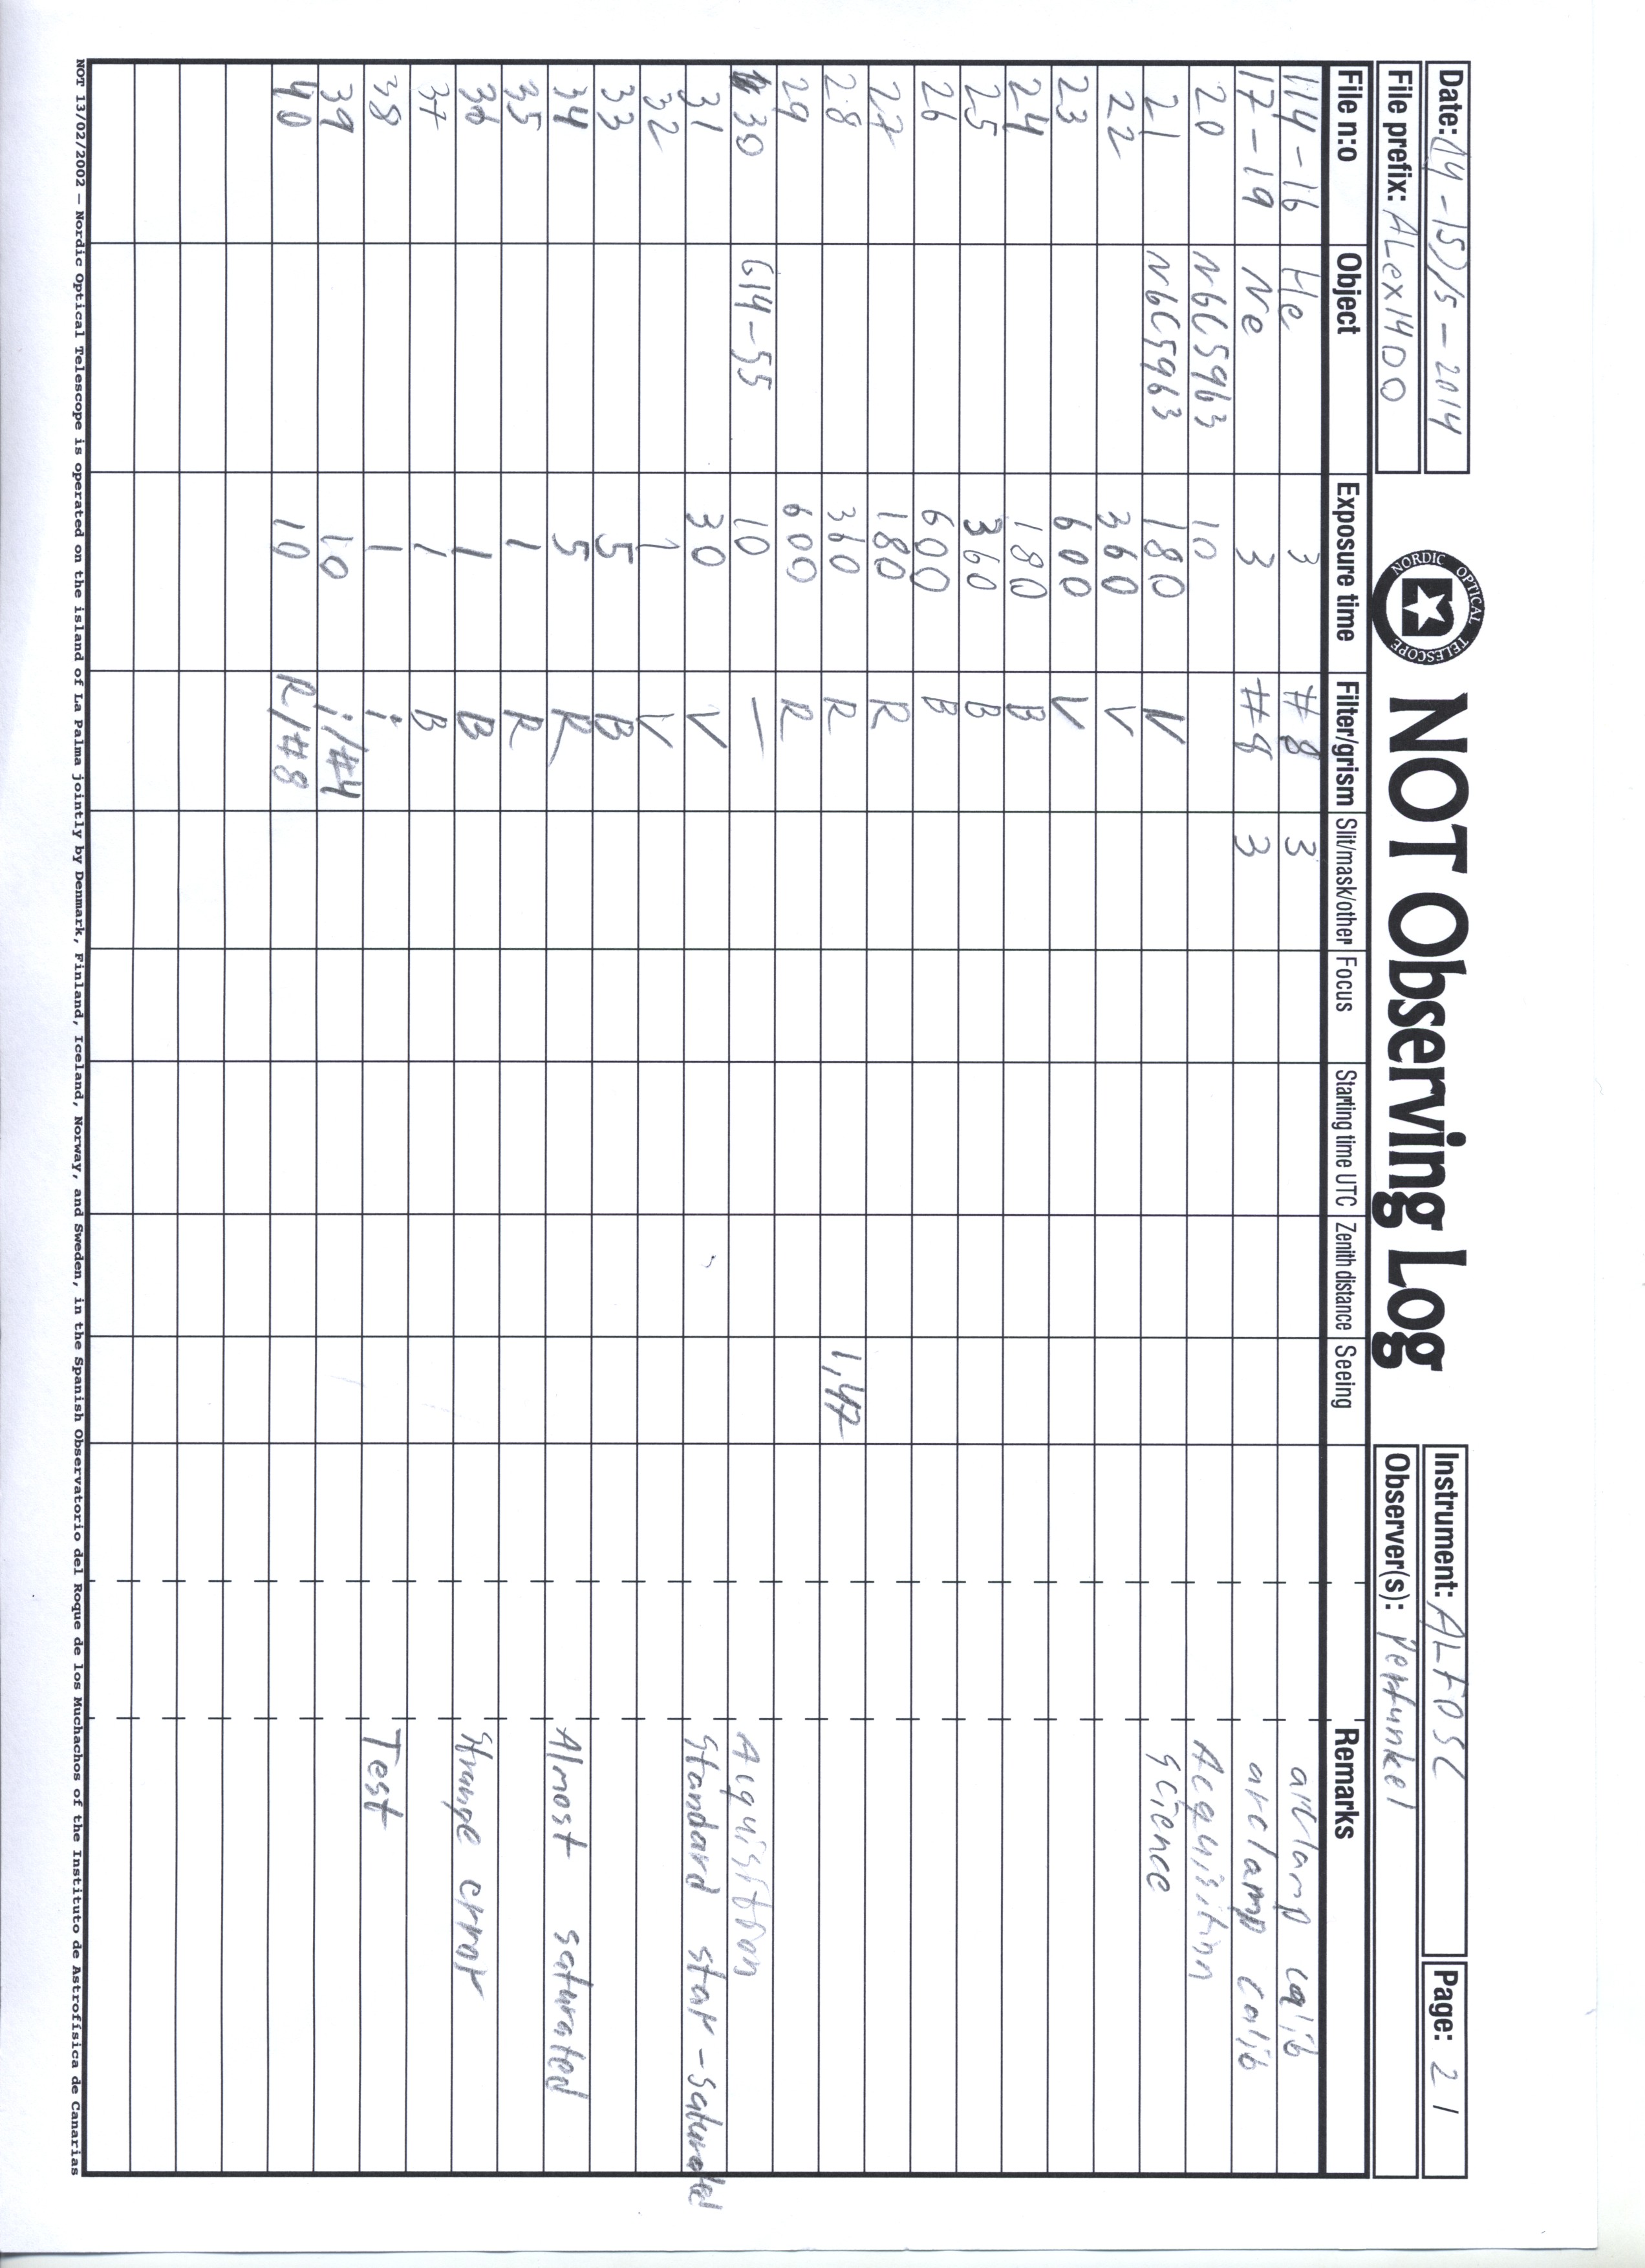 Date: 14-15)/5-2014
NORDIC OPTICAL TELESCOPE
NOT Observing Log
Instrument: ALFOSC
Page: 21
File prefix: ALex1400
Observer(s): Pertunkel
File n:o Object Exposure time Filter/grism Slit/mask/other Focus Starting time UTC Zenith distance Seeing Remarks
114-16 He 3 #8 3 arclamp calib
17-19 Ne 3 #8 3 arclamp calib
20 NGC5963 10 Acquisition
21 NGC5963 180 V science
22 360 V
23 600 V
24 180 B
25 360 B
26 600 B
27 180 R
28 360 R 1,47
29 600 R
30 G14-55 10 — Acquisition
31 30 V Standard star - saturated
32 1 V
33 5 B
34 5 R Almost saturated
35 1 R
36 1 B Strange error
37 1 B
38 1 i Test
39 10 i/#4
40 10 R/#8
NOT 13/02/2002 — Nordic Optical Telescope is operated on the island of La Palma jointly by Denmark, Finland, Iceland, Norway, and Sweden, in the Spanish Observatorio del Roque de los Muchachos of the Instituto de Astrofísica de Canarias